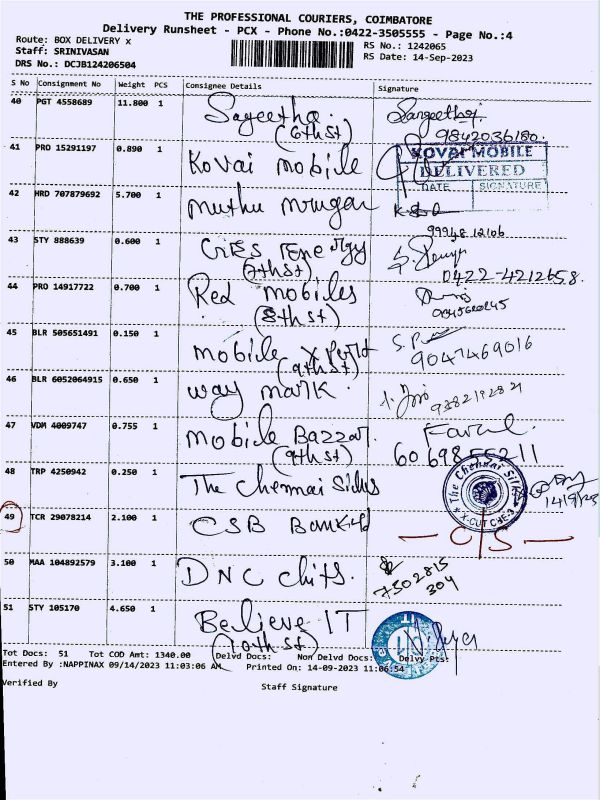 THE PROFESSIONAL COURIERS, COIMBATORE
Delivery Runsheet - PCX - Phone No.:0422-3505555 - Page No.:4
Route: BOX DELIVERY x
RS No.: 1242065
Staff: SRINIVASAN
RS Date: 14-Sep-2023
DRS No.: DCJB124206504
S No Consignment No Weight PCS Consignee Details Signature
40 PGT 4558689 11.800 1 Sageetha
(6th st)
9842036180.
41 PRO 15291197 0.890 1 Kovai mobile
KOVAI MOBILE
DELIVERED
DATE SIGNATURE
42 HRD 707879692 5.700 1 Muthu Mrugan
99948 12106
43 STY 888639 0.600 1 Energy
(7th st)
0422-4212658.
44 PRO 14917722 0.700 1 Red mobiles
(8th st)
45 BLR 505651491 0.150 1 mobile
(9th st)
9047469016
46 BLR 6052064915 0.650 1 way mark.
47 VDM 4009747 0.755 1 mobile Bazzar.
(9th st)
48 TRP 4250942 0.250 1 The Chennai Silks
The Chennai Silks
X-CUT CBE-3
14/9/23
49 TCR 29078214 2.100 1 CSB Bank Ltd
— C/S —
50 MAA 104892579 3.100 1 DNC chits.
7502815
304
51 STY 105170 4.650 1 Believe IT
(10th st)
Tot Docs: 51 Tot COD Amt: 1340.00 Delvd Docs: Non Delvd Docs: Delvy Pts:
Entered By :NAPPINAX 09/14/2023 11:03:06 AM Printed On: 14-09-2023 11:06:54
Verified By Staff Signature